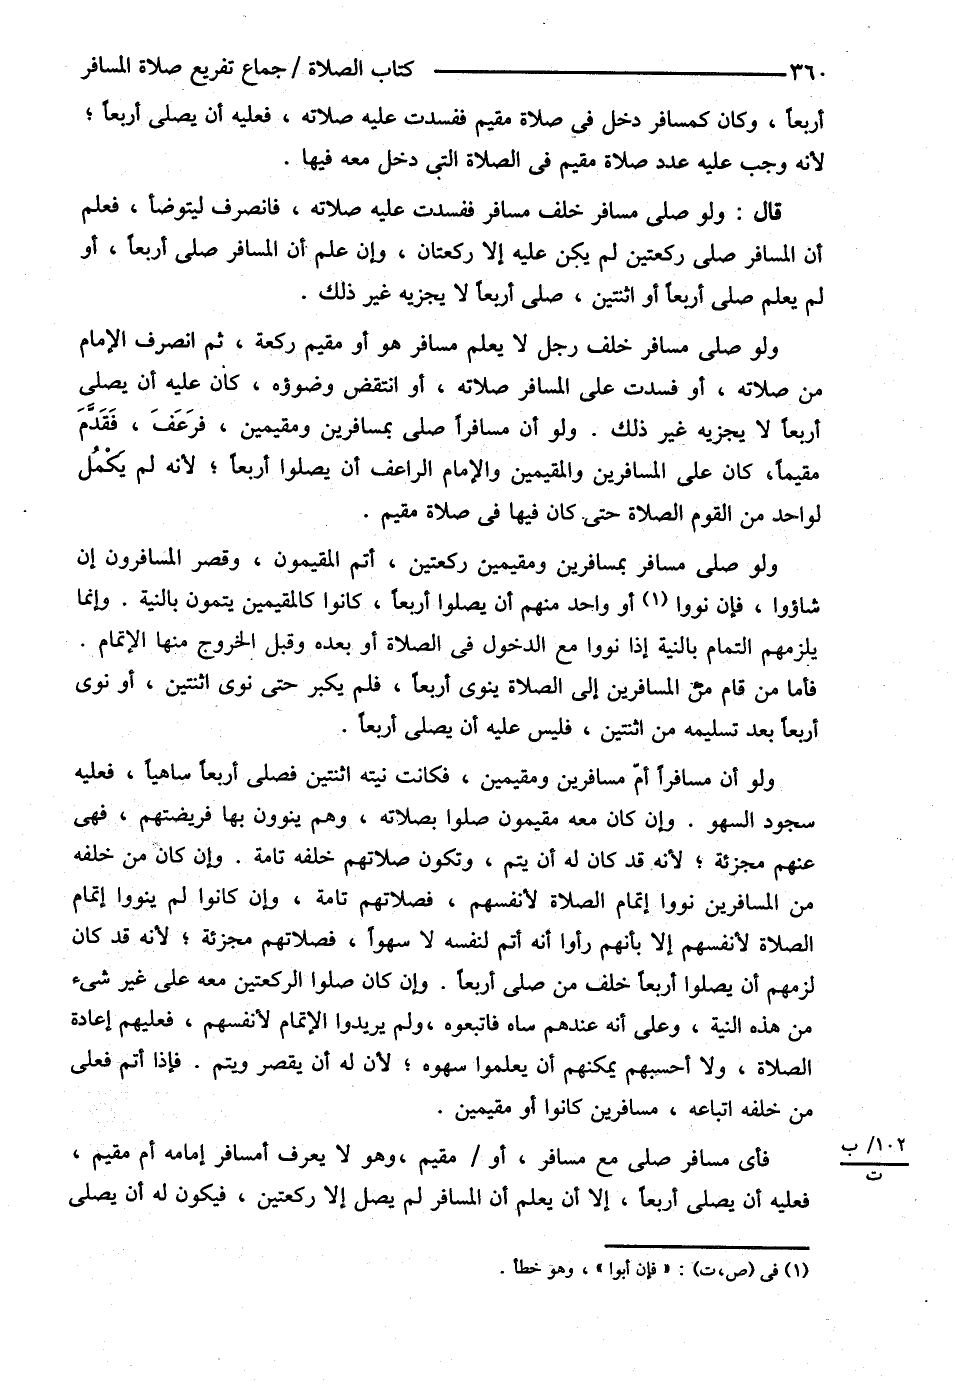 ٣٦٠ ــــــــ كتاب الصلاة / جماع تفريع صلاة المسافر
أربعاً ، وكان كمسافر دخل فى صلاة مقيم ففسدت عليه صلاته ، فعليه أن يصلى أربعاً ؛
لأنه وجب عليه عدد صلاة مقيم فى الصلاة التى دخل معه فيها .
قال : ولو صلى مسافر خلف مسافر ففسدت عليه صلاته ، فانصرف ليتوضأ ، فعلم
أن المسافر صلى ركعتين لم يكن عليه إلا ركعتان ، وإن علم أن المسافر صلى أربعاً ، أو
لم يعلم صلى أربعاً أو اثنتين ، صلى أربعاً لا يجزيه غير ذلك .
ولو صلى مسافر خلف رجل لا يعلم مسافر هو أو مقيم ركعة ، ثم انصرف الإمام
من صلاته ، أو فسدت على المسافر صلاته ، أو انتقض وضوؤه ، كان عليه أن يصلى
أربعاً لا يجزيه غير ذلك . ولو أن مسافراً صلى بمسافرين ومقيمين ، فرَعَفَ ، فَقَدَّمَ
مقيماً، كان على المسافرين والمقيمين والإمام الراعف أن يصلوا أربعاً ؛ لأنه لم يَكْمُل
لواحد من القوم الصلاة حتى كان فيها فى صلاة مقيم .
ولو صلى مسافر بمسافرين ومقيمين ركعتين ، أتم المقيمون ، وقصر المسافرون إن
شاؤوا ، فإن نووا (١) أو واحد منهم أن يصلوا أربعاً ، كانوا كالمقيمين يتمون بالنية . وإنما
يلزمهم التمام بالنية إذا نووا مع الدخول فى الصلاة أو بعده وقبل الخروج منها الإتمام .
فأما من قام من المسافرين إلى الصلاة ينوى أربعاً ، فلم يكبر حتى نوى اثنتين ، أو نوى
أربعاً بعد تسليمه من اثنتين ، فليس عليه أن يصلى أربعاً .
ولو أن مسافراً أمّ مسافرين ومقيمين ، فكانت نيته اثنتين فصلى أربعاً ساهياً ، فعليه
سجود السهو . وإن كان معه مقيمون صلوا بصلاته ، وهم ينوون بها فريضتهم ، فهى
عنهم مجزئة ؛ لأنه قد كان له أن يتم ، وتكون صلاتهم خلفه تامة . وإن كان من خلفه
من المسافرين نووا إتمام الصلاة لأنفسهم ، فصلاتهم تامة ، وإن كانوا لم ينووا إتمام
الصلاة لأنفسهم إلا بأنهم رأوا أنه أتم لنفسه لا سهواً ، فصلاتهم مجزئة ؛ لأنه قد كان
لزمهم أن يصلوا أربعاً خلف من صلى أربعاً . وإن كان صلوا الركعتين معه على غير شىء
من هذه النية ، وعلى أنه عندهم ساه فاتبعوه ،ولم يريدوا الإتمام لأنفسهم ، فعليهم إعادة
الصلاة ، ولا أحسبهم يمكنهم أن يعلموا سهوه ؛ لأن له أن يقصر ويتم . فإذا أتم فعلى
من خلفه اتباعه ، مسافرين كانوا أو مقيمين .
فأى مسافر صلى مع مسافر ، أو / مقيم ،وهو لا يعرف أمسافر إمامه أم مقيم ،
١٠٢/ ب
ت
فعليه أن يصلى أربعاً ، إلا أن يعلم أن المسافر لم يصل إلا ركعتين ، فيكون له أن يصلى
(١) فى (ص،ت) : « فإن أبوا » ، وهو خطأ .